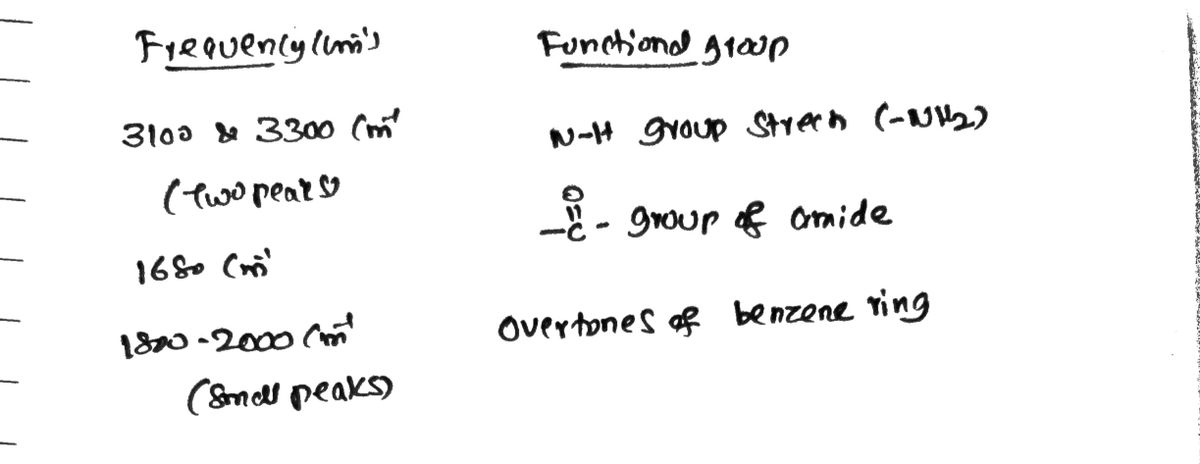 Frequency (cm⁻¹) Functional group
3100 & 3300 cm⁻¹ N-H group Strech (-NH₂)
(two peaks)
O
||
-C- group of amide
1680 cm⁻¹
1800-2000 cm⁻¹ Overtones of benzene ring
(Small peaks)